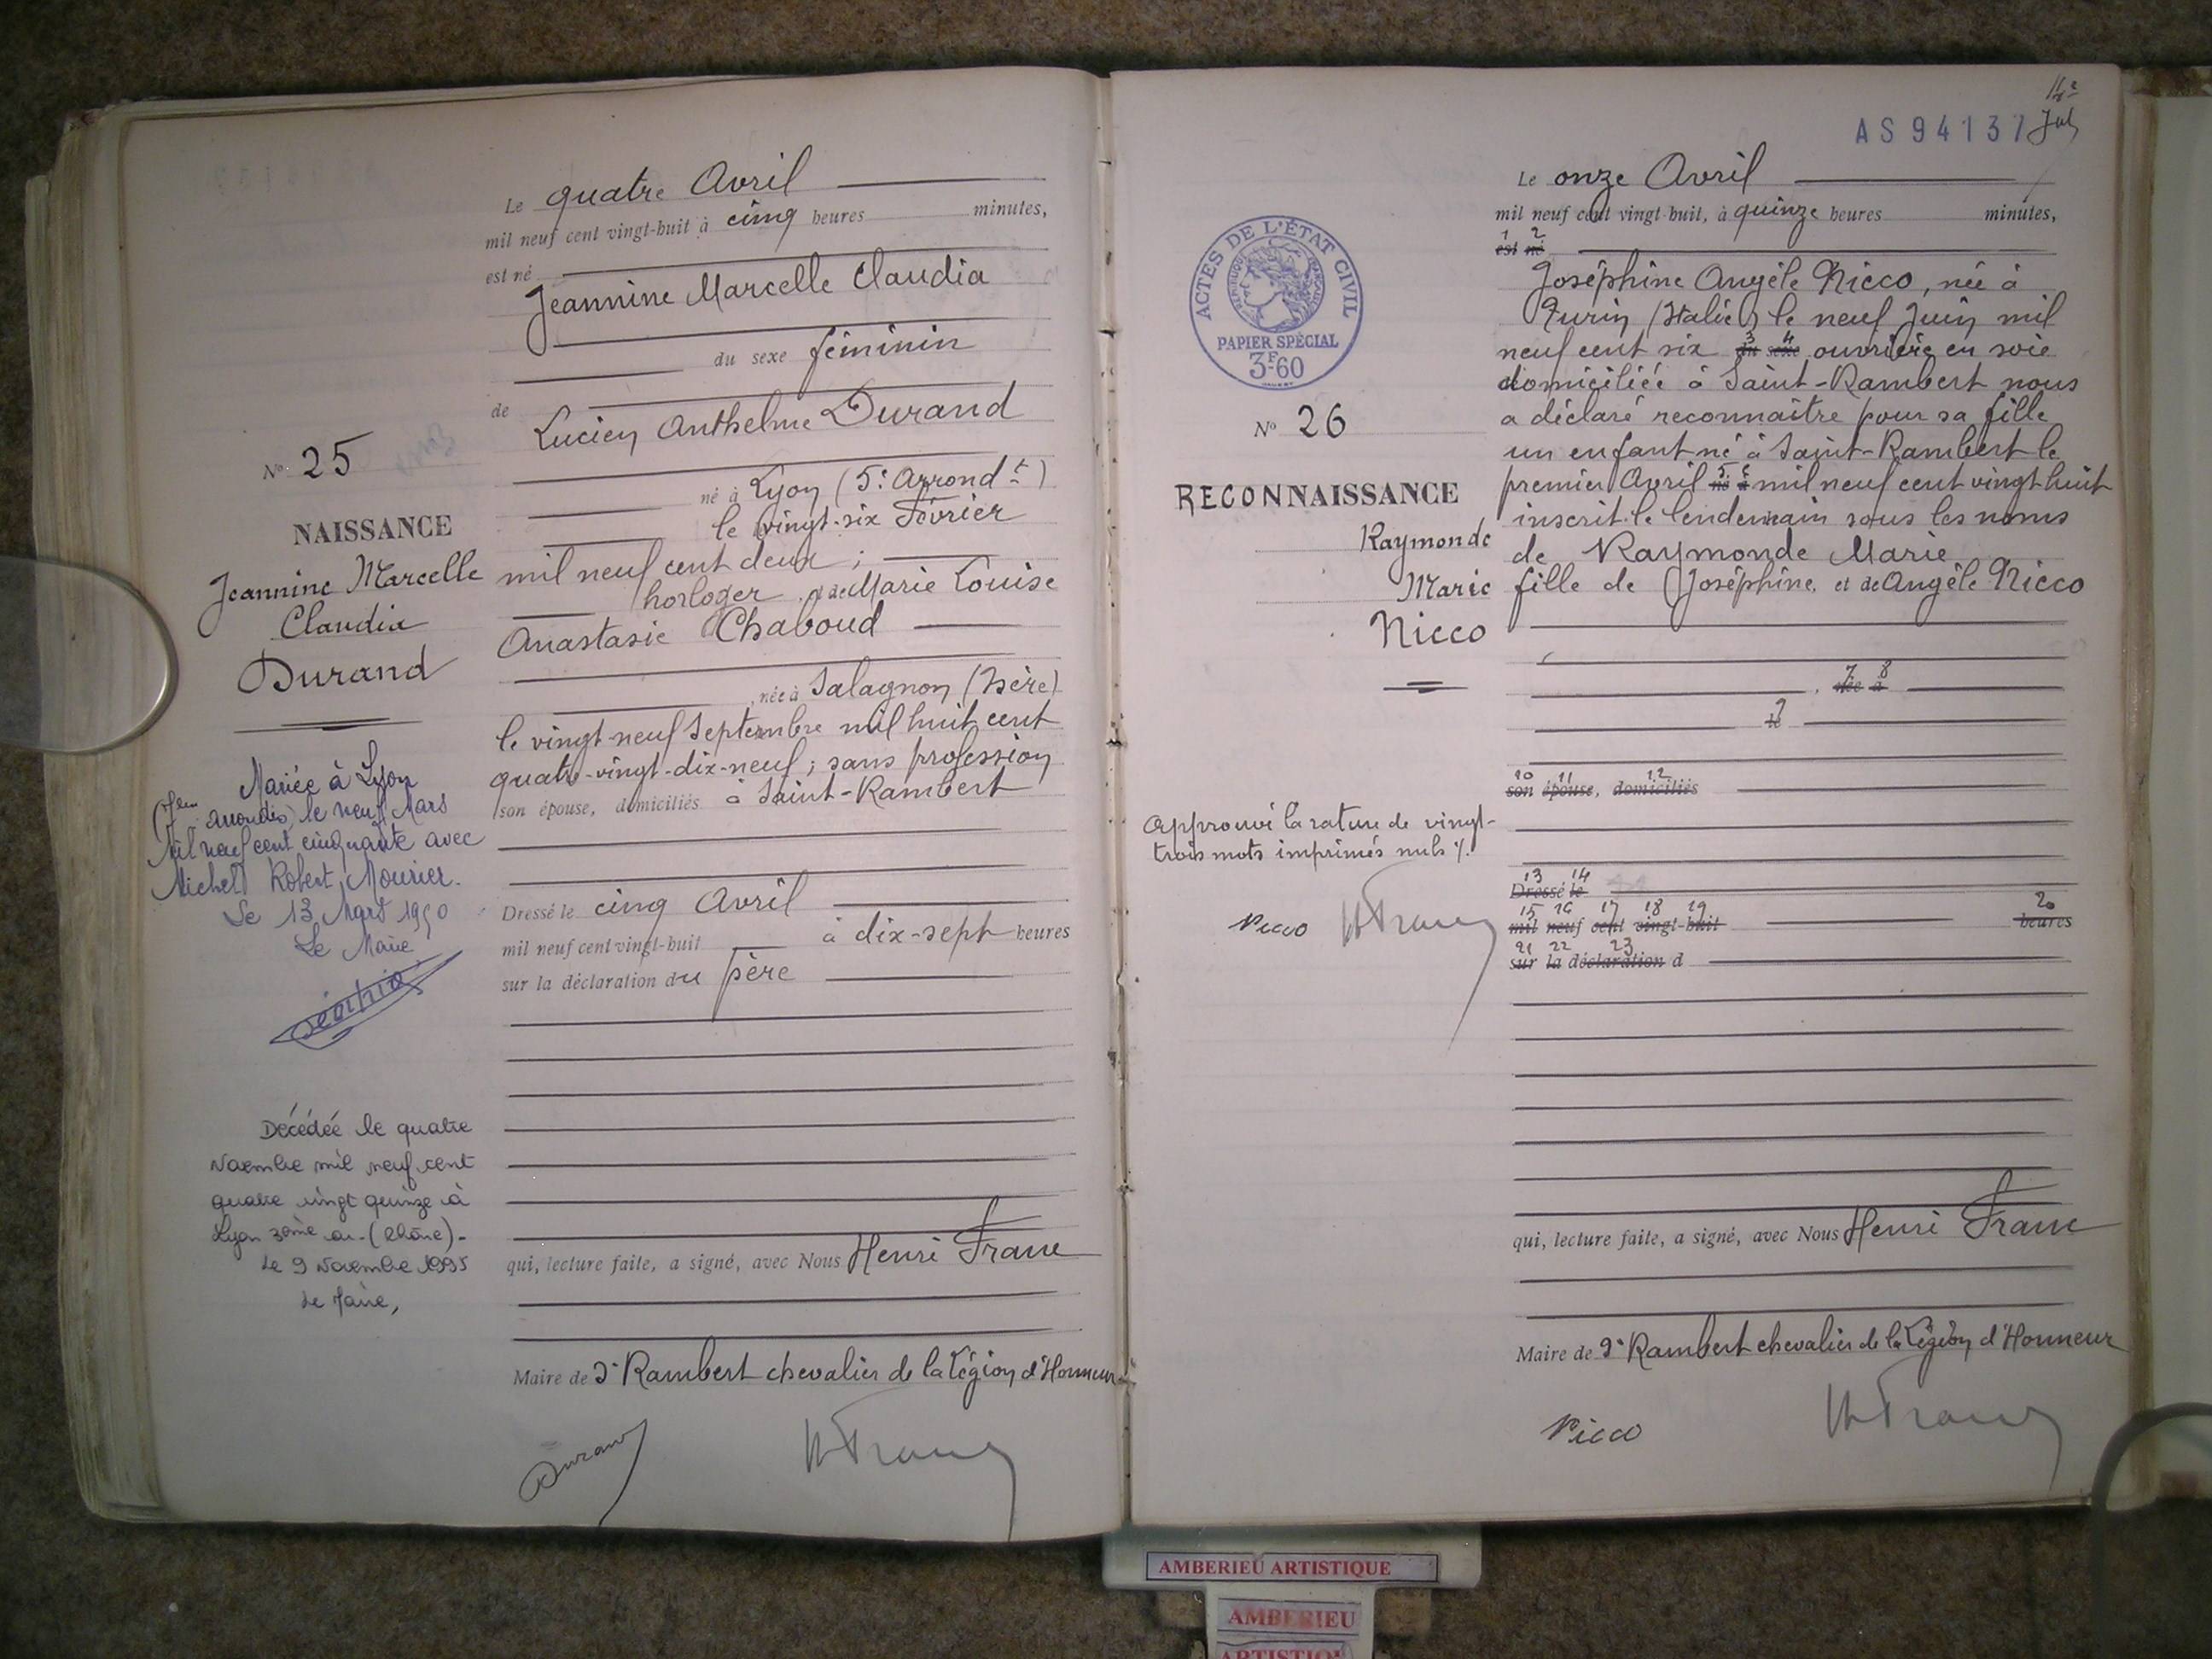 Le quatre Avril
mil neuf cent vingt-huit à cinq heures minutes,
est né
Jeannine Marcelle Claudia
du sexe féminin
de
Lucien Anthelme Durand
né à Lyon (5e Arrondt)
le vingt-six Février
mil neuf cent deux ;
horloger et de Marie Louise
Anastasie Chaboud
née à Salagnon (Isère)
le vingt neuf Septembre mil huit cent
quatre-vingt-dix-neuf ; sans profession
son épouse, domiciliés à Saint-Rambert
Dressé le cinq Avril
mil neuf cent vingt-huit à dix-sept heures
sur la déclaration du père
qui, lecture faite, a signé, avec Nous Henri Franc
Maire de St Rambert chevalier de la Légion d'Honneur
Durand
HFranc
No 25
NAISSANCE
Jeannine Marcelle
Claudia
Durand
Mariée à Lyon
arrondis) le neuf Mars
Mil neuf cent cinquante avec
Michel Robert Mourier.
Le 13 Mars 1950
Le Maire
Décédée le quatre
Novembre mil neuf cent
quatre vingt quinze à
Lyon 3ème ar. (Rhône)-
Le 9 Novembre 1995
Le Maire,
AS 94137
Le onze Avril
mil neuf cent vingt-huit, à quinze heures minutes,
1 2
est né
Joséphine Angèle Nicco, née à
Turin (Italie) le neuf Juin mil
neuf cent six du sexe ouvrière en soie
domiciliée à Saint-Rambert nous
a déclaré reconnaître pour sa fille
un enfant né à Saint-Rambert le
premier Avril né à mil neuf cent vingt huit
inscrit le lendemain sous les noms
de Raymonde Marie
fille de Joséphine, et de Angèle Nicco
7 8
, née à
9
le
10 11 12
son épouse, domiciliés
13 14
Dressé le
15 16 17 18 19 20
mil neuf cent vingt-huit heures
21 22 23
sur la déclaration d
qui, lecture faite, a signé, avec Nous Henri Franc
Maire de St Rambert chevalier de la Légion d'Honneur
Nicco
HFranc
ACTES DE L'ÉTAT CIVIL
RÉPUBLIQUE FRANÇAISE
PAPIER SPÉCIAL
3F60
No 26
RECONNAISSANCE
Raymonde
Marie
Nicco
Approuvé la rature de vingt-
trois mots imprimés nuls
Nicco HFranc
AMBERIEU ARTISTIQUE
AMBERIEU
ARTISTIQUE